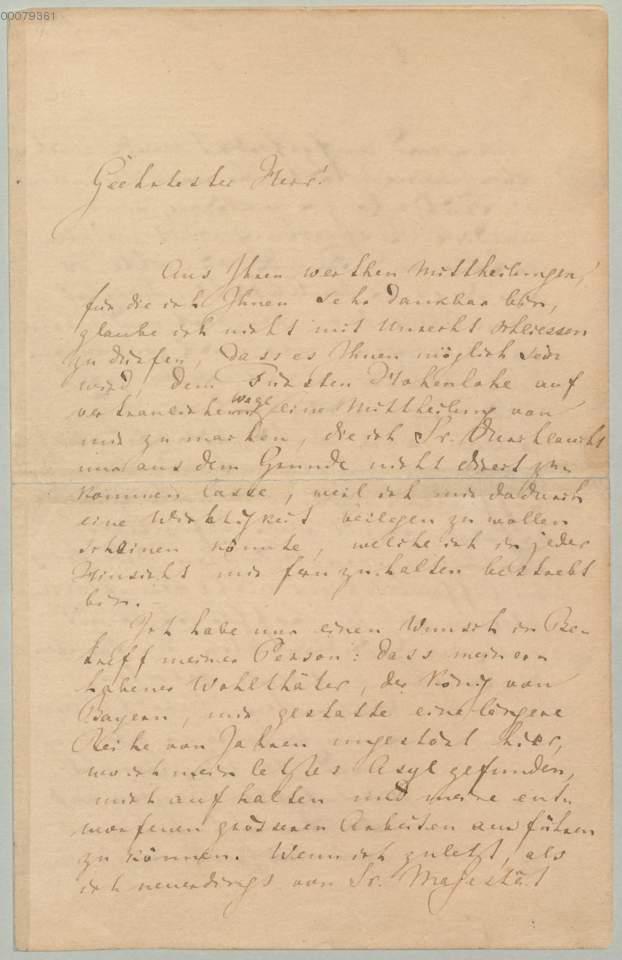 00079361
Geehrtester Herr!
Aus Ihren werthen Mittheilungen,
für die ich Ihnen sehr dankbar bin,
glaube ich nicht mit Unrecht schliessen
zu dürfen, dass es Ihnen möglich sein
wird, dem Fürsten Hohenlohe auf
vertraulichem Wege eine Mittheilung von
mir zu machen, die ich Sr. Durchlaucht
nur aus dem Grunde nicht direct zu-
kommen lasse, weil ich mir dadurch
eine Wichtigkeit beilegen zu wollen
scheinen könnte, welche ich in jeder
Hinsicht mir fern zu halten bestrebt
bin.–
Ich habe nur einen Wunsch in Be-
treff meiner Person: dass mein er-
habener Wohlthäter, der König von
Bayern, mir gestatte eine längere
Reihe von Jahren ungestört hier,
wo ich mein letztes Asyl gefunden,
mich aufhalten und meine ent-
worfenen grösseren Arbeiten ausführen
zu können. Wenn ich zuletzt, als
ich neuerdings von Sr. Majestät